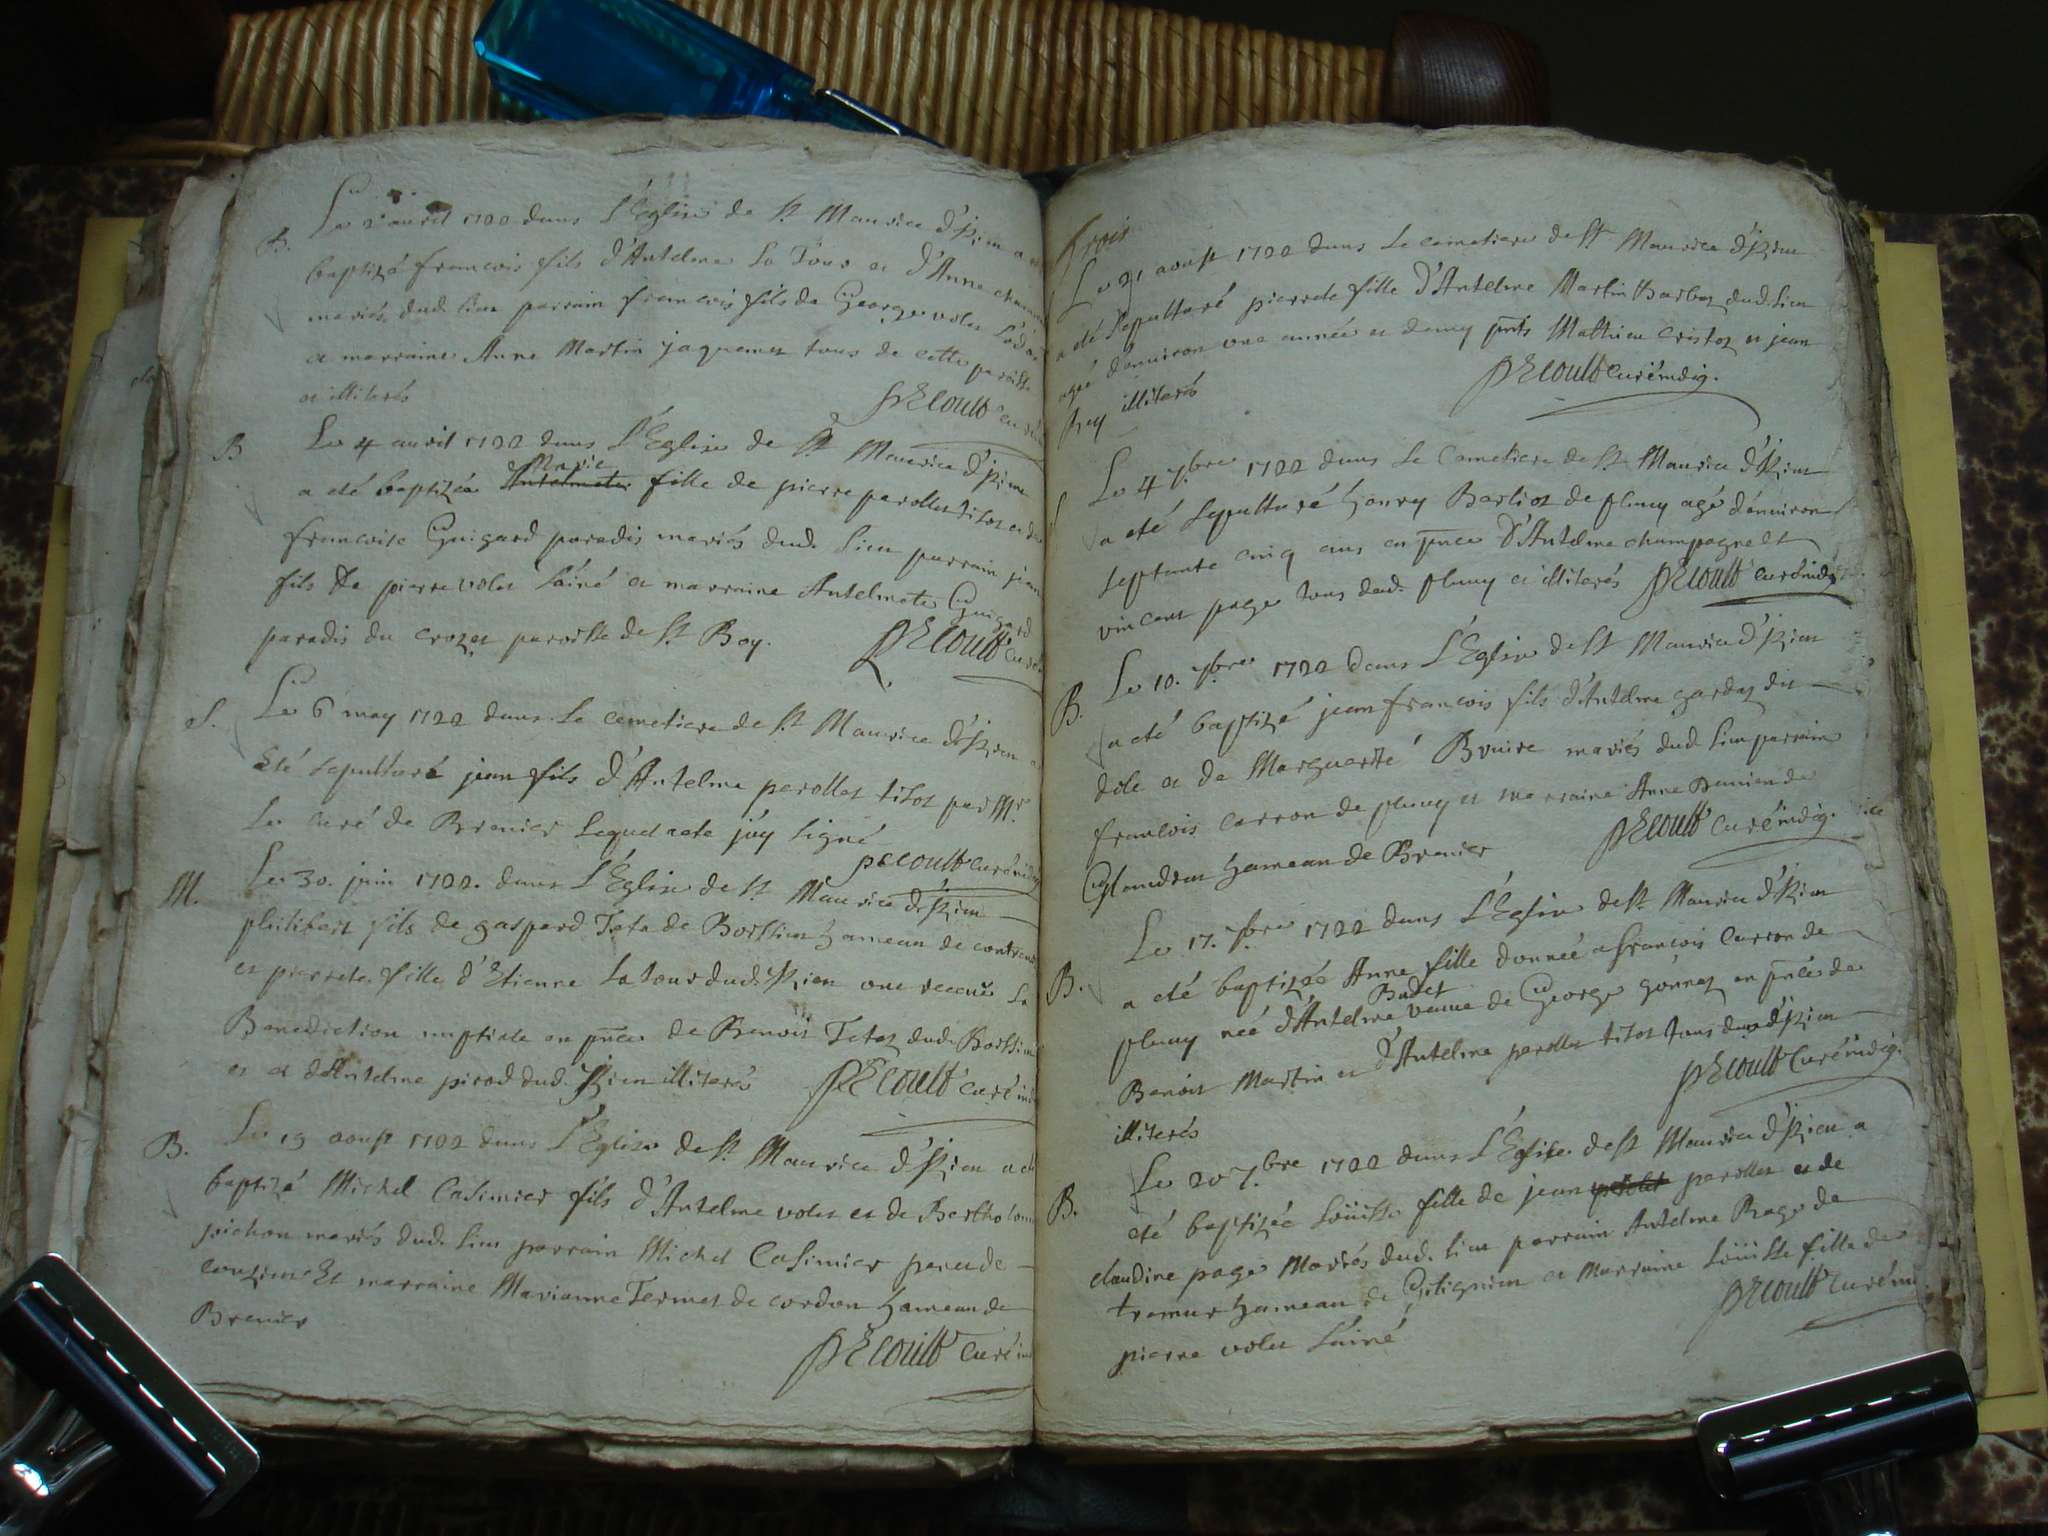 B. Le 2 avril 1722 dans L'Eglise de St Maurice d'Izieu a
baptizé francois fils d'Antelme La Tour et d'Anne
mariés dud. lieu parrain francois fils de George volet
et marraine Anne Martin jaquemet tous de cette paroisse
et illiterés PECoult curé
B Le 4 avril 1722 dans L'Eglise de St Maurice d'Izieu
a eté baptizée Marie fille de pierre perollet titot et de
francoise Guigard paradis mariés dud. lieu parrain jean
fils de pierre volet Láiné et marraine Antelmete Guigard
paradis du crozet parroisse de St Boy. PECoult curé
S. Le 6 may 1722 dans Le cemetiere de St Maurice d'Izieu a
Eté sepulturé jean fils d'Antelme perollet titot par Mr.
Le curé de Brenier Lequel acte j'ay signé
PECoult curé indig
M. Le 30. juin 1722. dans L'Eglise de St Maurice d'Izieu
philibert fils de gaspard Tete de Bossieu hameau de
et pierrete fille d'Etienne Latour dud. Izieu ont receue La
Benediction nuptiale en pnce de Benoit Tetet dud. Bossieu
et d'Antelme pirod dud. Izieu illiterés PECoult Curé ind
B. Le 19 aoust 1722 dans L'Eglise de St Maurice d'Izieu a eté
baptizé Michel Casimier fils d'Antelme volet et de
pichon mariés dud. lieu parrain Michel Casimier
et marraine Marianne Termet de cordon hameau de
Brenier PECoult Curé ind
trois
Le 21 aoust 1722 dans Le cemetiere de St Maurice d'Izieu
a eté sepulturé pierrete fille d'Antelme Martin Barbet dud. lieu
agé d'environ une année et demy pnts Mathieu cristot et jean
Rey illiterés PECoult Curé indig.
S Le 4 7bre 1722 dans Le Cemetiere de St Maurice d'Izieu
a eté sepulturé henry Berliot de pluny agé d'environ
septante cinq ans en pnce D'Antelme champagne et
vincent page tous dud. pluny et illiterés PECoult Curé indig
B. Le 10. 7bre 1722 dans L'Eglise de St Maurice d'Izieu
a eté baptizé jean francois fils d'Antelme gardet dit
dole et de Marguerite Bruire mariés dud. lieu parrain
francois carron de pluny et marraine Anne Demien de
Glandieu hameau de Brenier PECoult Curé indig.
Le 17. 7bre 1722 dans L'Eglise de St Maurice d'Izieu
B. a eté baptizée Anne fille donnée a francois Carron de
pluny neé d'Antelme Budet veuve de George gonnet en pnce de
Benoit Martin et d'Antelme perollet titot tous dud. d'Izieu
illiterés PECoult Curé indig.
B. Le 20 7bre 1722 dans L'Eglise de St Maurice d'Izieu a
eté baptizée Loüisse fille de jean perollet et de
claudine page Mariés dud. lieu parrain Antelme Page de
hameau de et Marraine Loüisse fille de
pierre volet Láiné PECoult Curé in